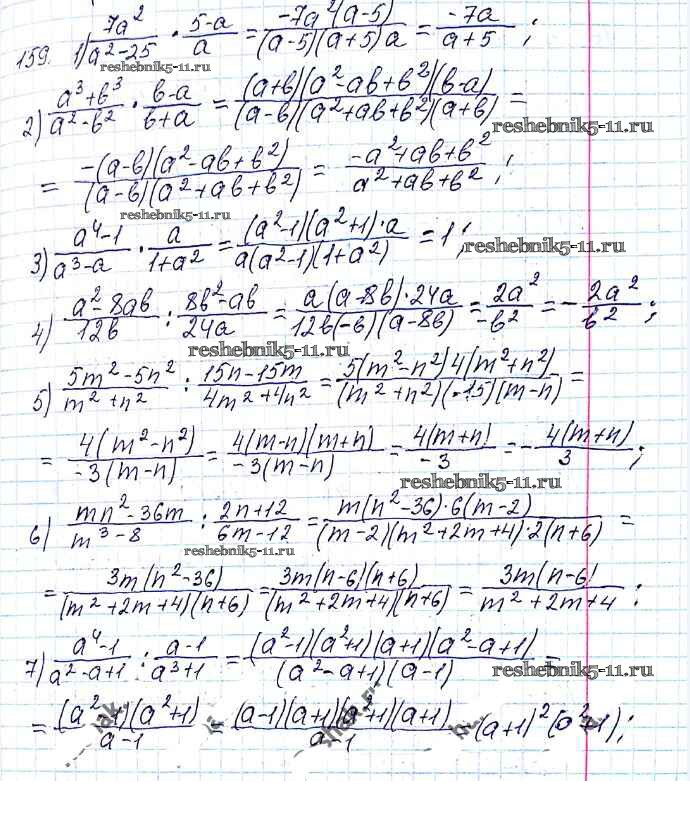 159. 1) 7a²/(a²-25) · (5-a)/a = -7a²(a-5)/((a-5)(a+5)a) = -7a/(a+5);
reshebnik5-11.ru
2) (a³+b³)/(a²-b²) · (b-a)/(b+a) = (a+b)(a²-ab+b²)(b-a)/((a-b)(a²+ab+b²)(a+b)) =
reshebnik5-11.ru
= -(a-b)(a²-ab+b²)/((a-b)(a²+ab+b²)) = (-a²+ab+b²)/(a²+ab+b²);
reshebnik5-11.ru
3) (a⁴-1)/(a³-a) · a/(1+a²) = (a²-1)(a²+1)·a/(a(a²-1)(1+a²)) = 1;
4) (a²-8ab)/12b : (8b²-ab)/24a = a(a-8b)·24a/(12b(-b)(a-8b)) = 2a²/-b² = -2a²/b²;
reshebnik5-11.ru
5) (5m²-5n²)/(m²+n²) : (15n-15m)/(4m²+4n²) = 5(m²-n²)4(m²+n²)/((m²+n²)(-15)(m-n)) =
= 4(m²-n²)/(-3(m-n)) = 4(m-n)(m+n)/(-3(m-n)) = 4(m+n)/-3 = -4(m+n)/3;
reshebnik5-11.ru
6) (mn²-36m)/(m³-8) : (2n+12)/(6m-12) = m(n²-36)·6(m-2)/((m-2)(m²+2m+4)·2(n+6)) =
reshebnik5-11.ru
= 3m(n²-36)/((m²+2m+4)(n+6)) = 3m(n-6)(n+6)/((m²+2m+4)(n+6)) = 3m(n-6)/(m²+2m+4);
7) (a⁴-1)/(a²-a+1) : (a-1)/(a³+1) = (a²-1)(a²+1)(a+1)(a²-a+1)/((a²-a+1)(a-1)) =
reshebnik5-11.ru
= (a²-1)(a²+1)/(a-1) = (a-1)(a+1)(a²+1)(a+1)/(a-1) = (a+1)²(a²+1);